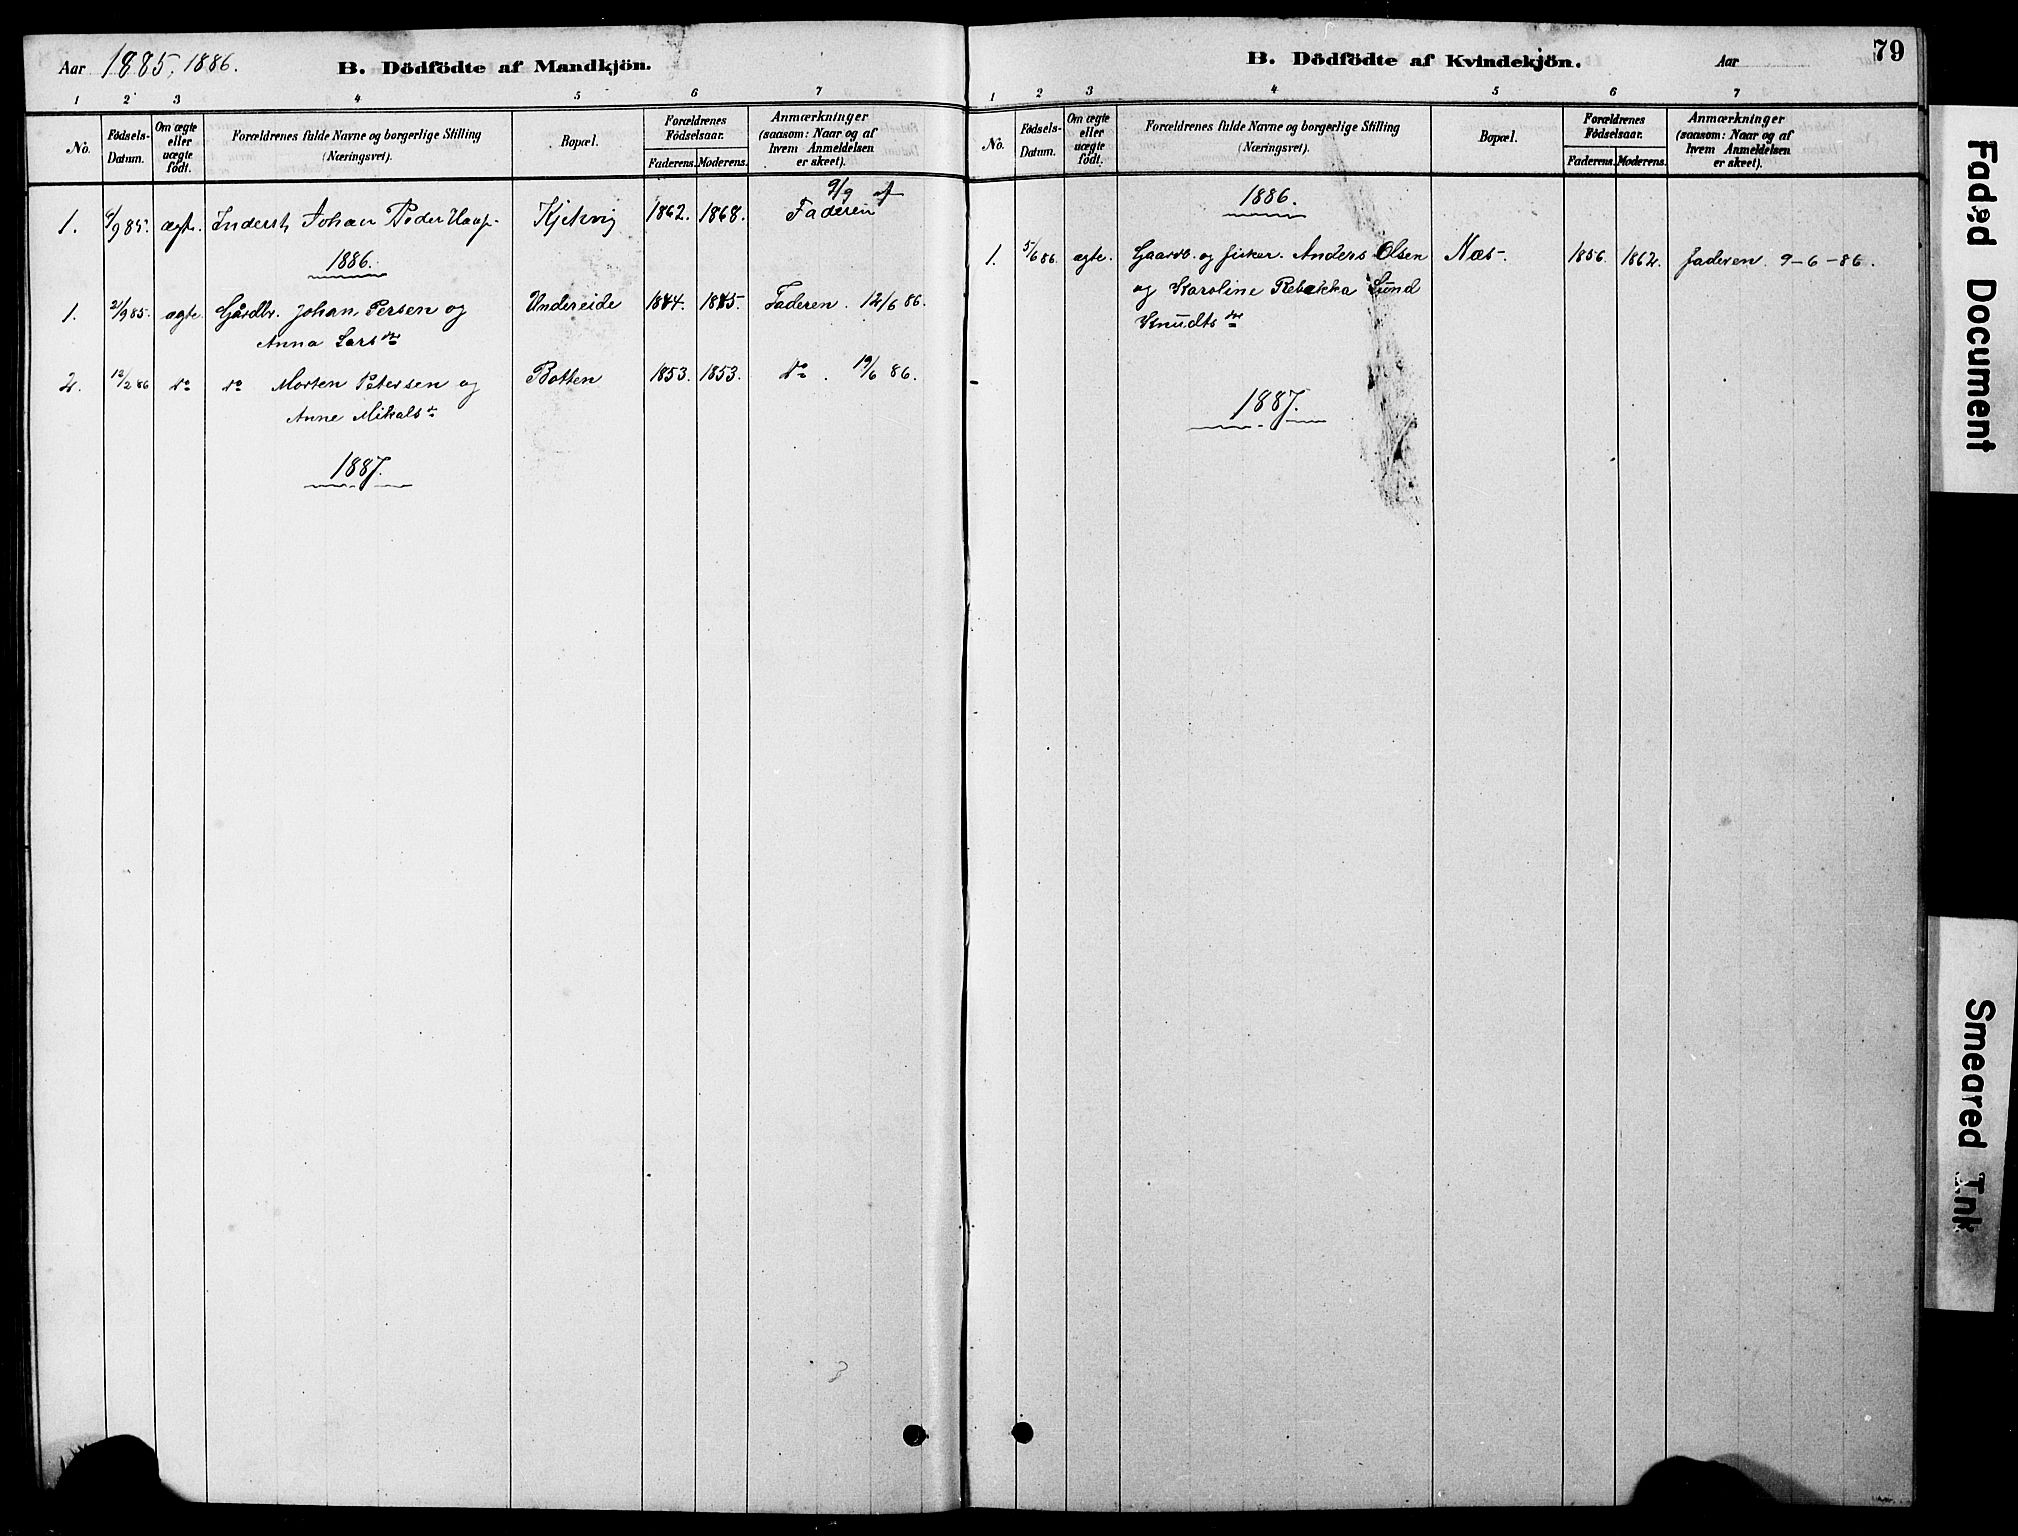 Aar 1885, 1886.
B. Dödfödte af Mandkjön.
1 2 3 4 5 6 7
No.
Fødsels-Datum.
Om ægte eller uægte födt.
Forældrenes fulde Navne og borgerlige Stilling (Næringsvei).
Bopæl.
Forældrenes Fødselsaar.
Faderens. Moderens.
Anmærkninger (saasom: Naar og af hvem Anmeldelsen er skeet).
9/9 af
1. 6/9 85. ægte. Inderst, Johan Peder Kjekvig 1862. 1868. Faderen
1886.
1. 21/9 85. ægte Gårdbr. Johan Persen og Undereide 1844. 1845. Faderen. 12/6 86.
Anna Larsdr
2. 12/2 86 do do Morten Petersen og Botten 1853. 1853. do. 19/6 86.
Anne Mikalsdr
1887.
B. Dödfödte af Kvindekjön.
Aar
79
1 2 3 4 5 6 7
No.
Fødsels-Datum.
Om ægte eller uægte födt.
Forældrenes fulde Navne og borgerlige Stilling (Næringsvei).
Bopæl.
Forældrenes Fødselsaar.
Faderens. Moderens.
Anmærkninger (saasom: Naar og af hvem Anmeldelsen er skeet).
1886.
1. 5/6 86. ægte. Gaardb. og fisker. Anders Olsen Næs. 1856. 1862. faderen 9-6-86.
og Karoline Rebekka Lund
Knudtsdr
1887.
Faded Document
Smeared Ink